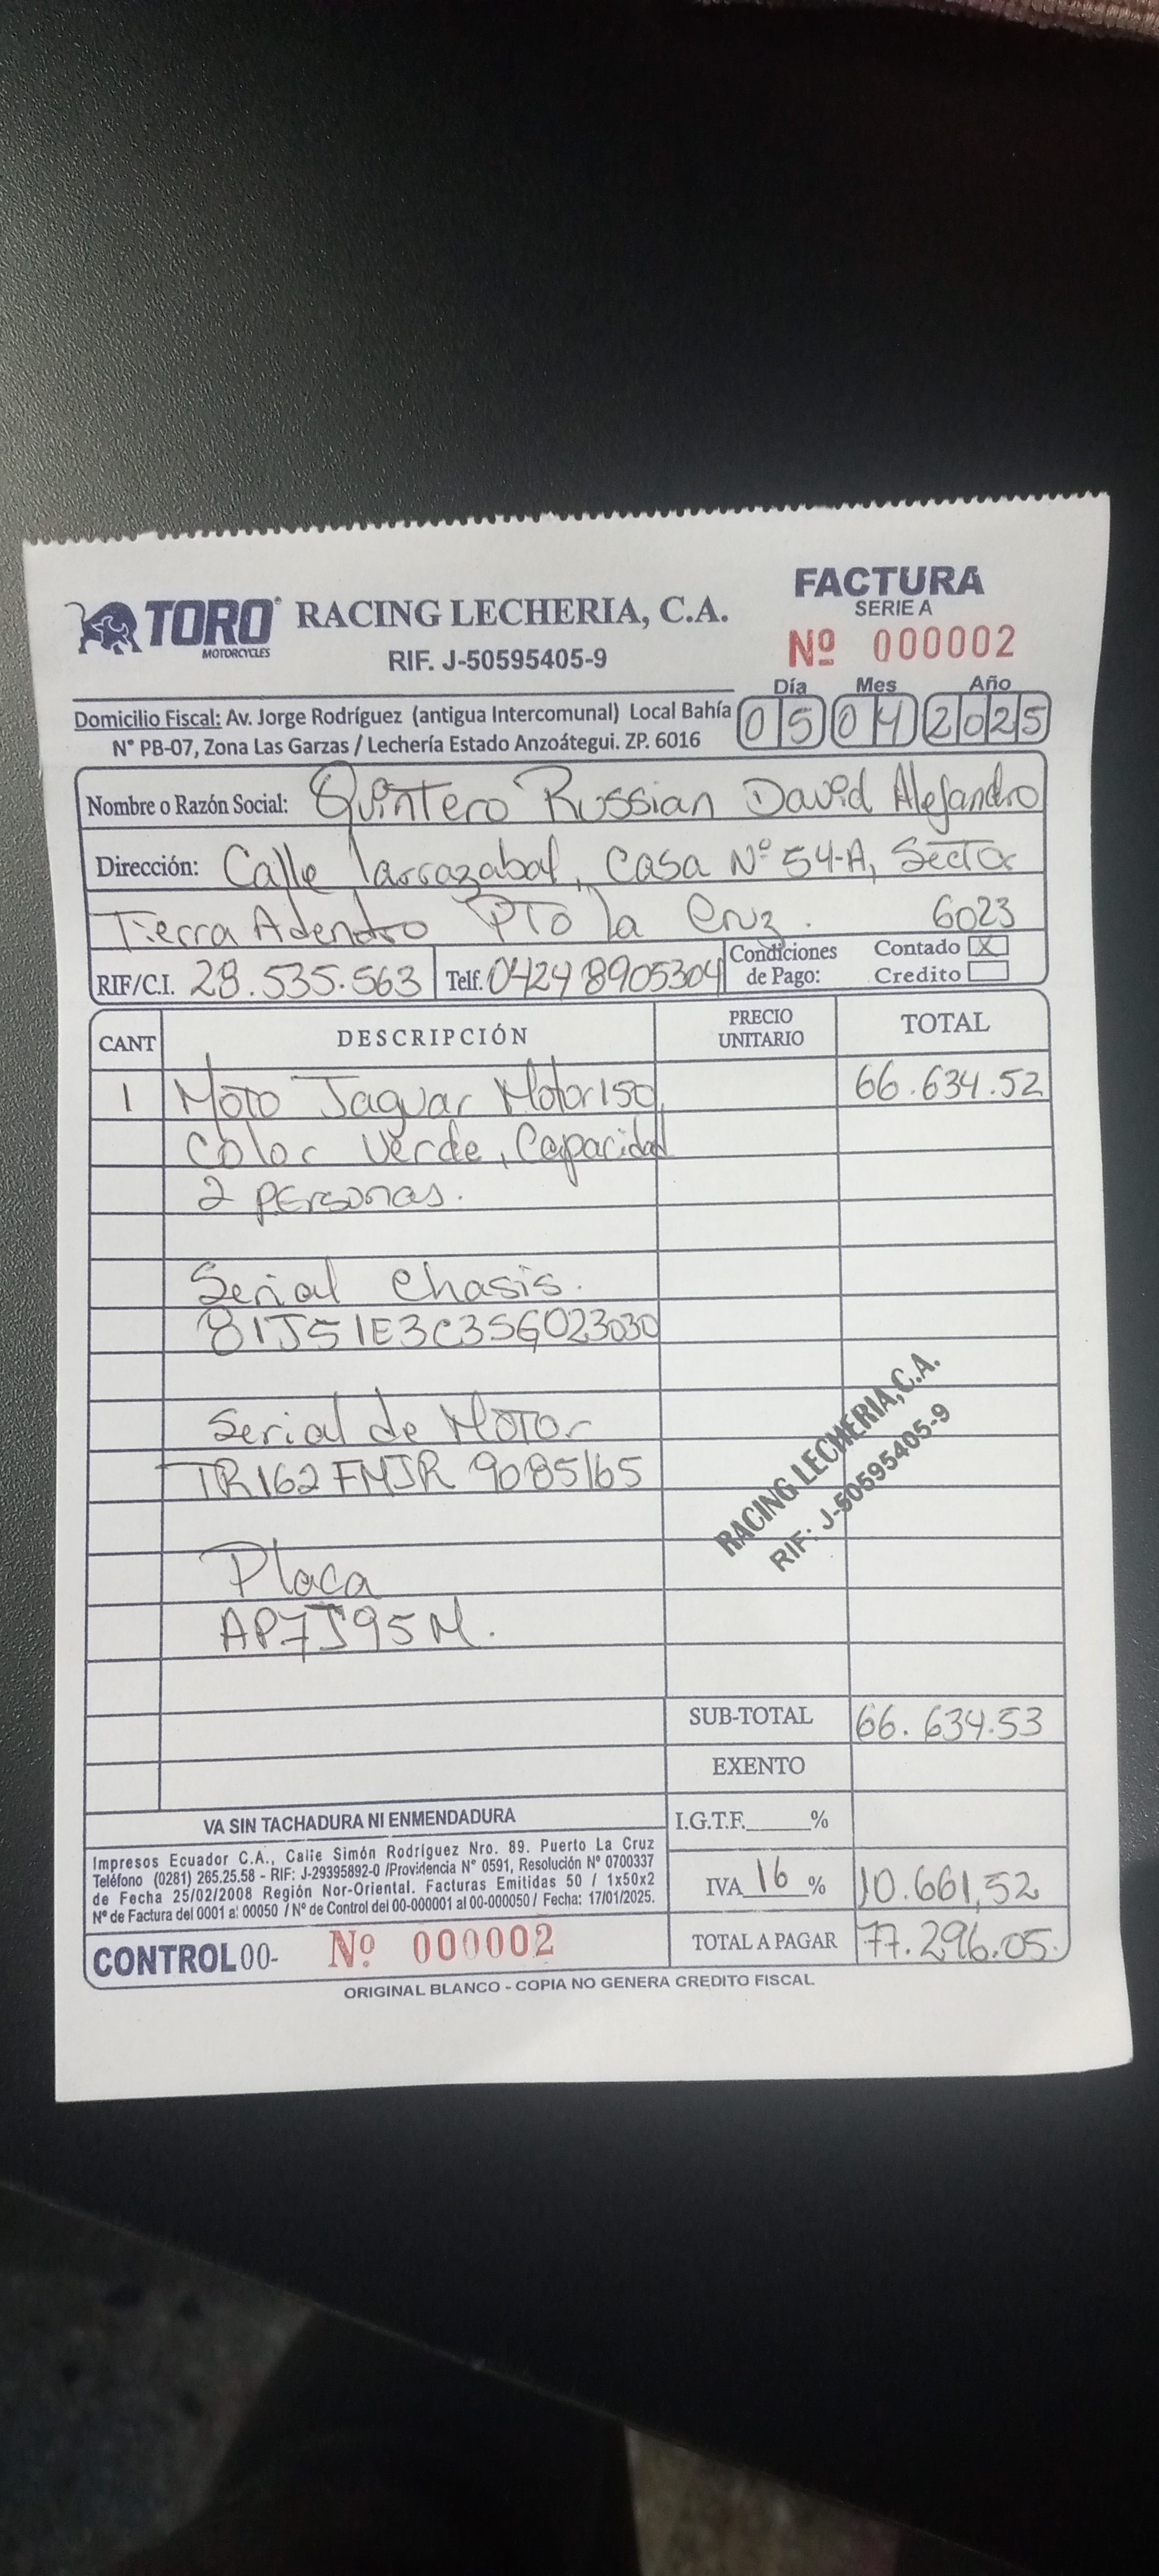 TORO
MOTORCYCLES
RACING LECHERIA, C.A.
RIF. J-50595405-9
FACTURA
SERIE A
Nº 000002
Domicilio Fiscal: Av. Jorge Rodríguez (antigua Intercomunal) Local Bahía
N° PB-07, Zona Las Garzas / Lechería Estado Anzoátegui. ZP. 6016
Día Mes Año
05 04 2025
Nombre o Razón Social: Quintero Russian David Alejandro
Dirección: Calle larrazabal, Casa Nº 54-A, Sector
Tierra Adentro PTO la Cruz. 6023
RIF/C.I. 28.535.563 Telf. 04248905304 Condiciones de Pago: Contado X
Credito
CANT DESCRIPCIÓN PRECIO UNITARIO TOTAL
1 Moto Jaguar Motor 150 66.634.52
Color Verde, Capacidad
2 personas.
Serial Chasis.
81JS1E3C3SG023030
Serial de Motor
TR162FMJR 9085165
Placa
AP7J95M.
RACING LECHERIA, C.A.
RIF: J-50595405-9
SUB-TOTAL 66.634.53
EXENTO
I.G.T.F.______%
IVA 16 % 10.661,52
TOTAL A PAGAR 77.296.05.
VA SIN TACHADURA NI ENMENDADURA
Impresos Ecuador C.A., Calle Simón Rodríguez Nro. 89. Puerto La Cruz
Teléfono (0281) 265.25.58 - RIF: J-29395892-0 /Providencia N° 0591, Resolución N° 0700337
de Fecha 25/02/2008 Región Nor-Oriental. Facturas Emitidas 50 / 1x50x2
N° de Factura del 0001 al 00050 / N° de Control del 00-000001 al 00-000050 / Fecha: 17/01/2025.
CONTROL 00- Nº 000002
ORIGINAL BLANCO - COPIA NO GENERA CREDITO FISCAL